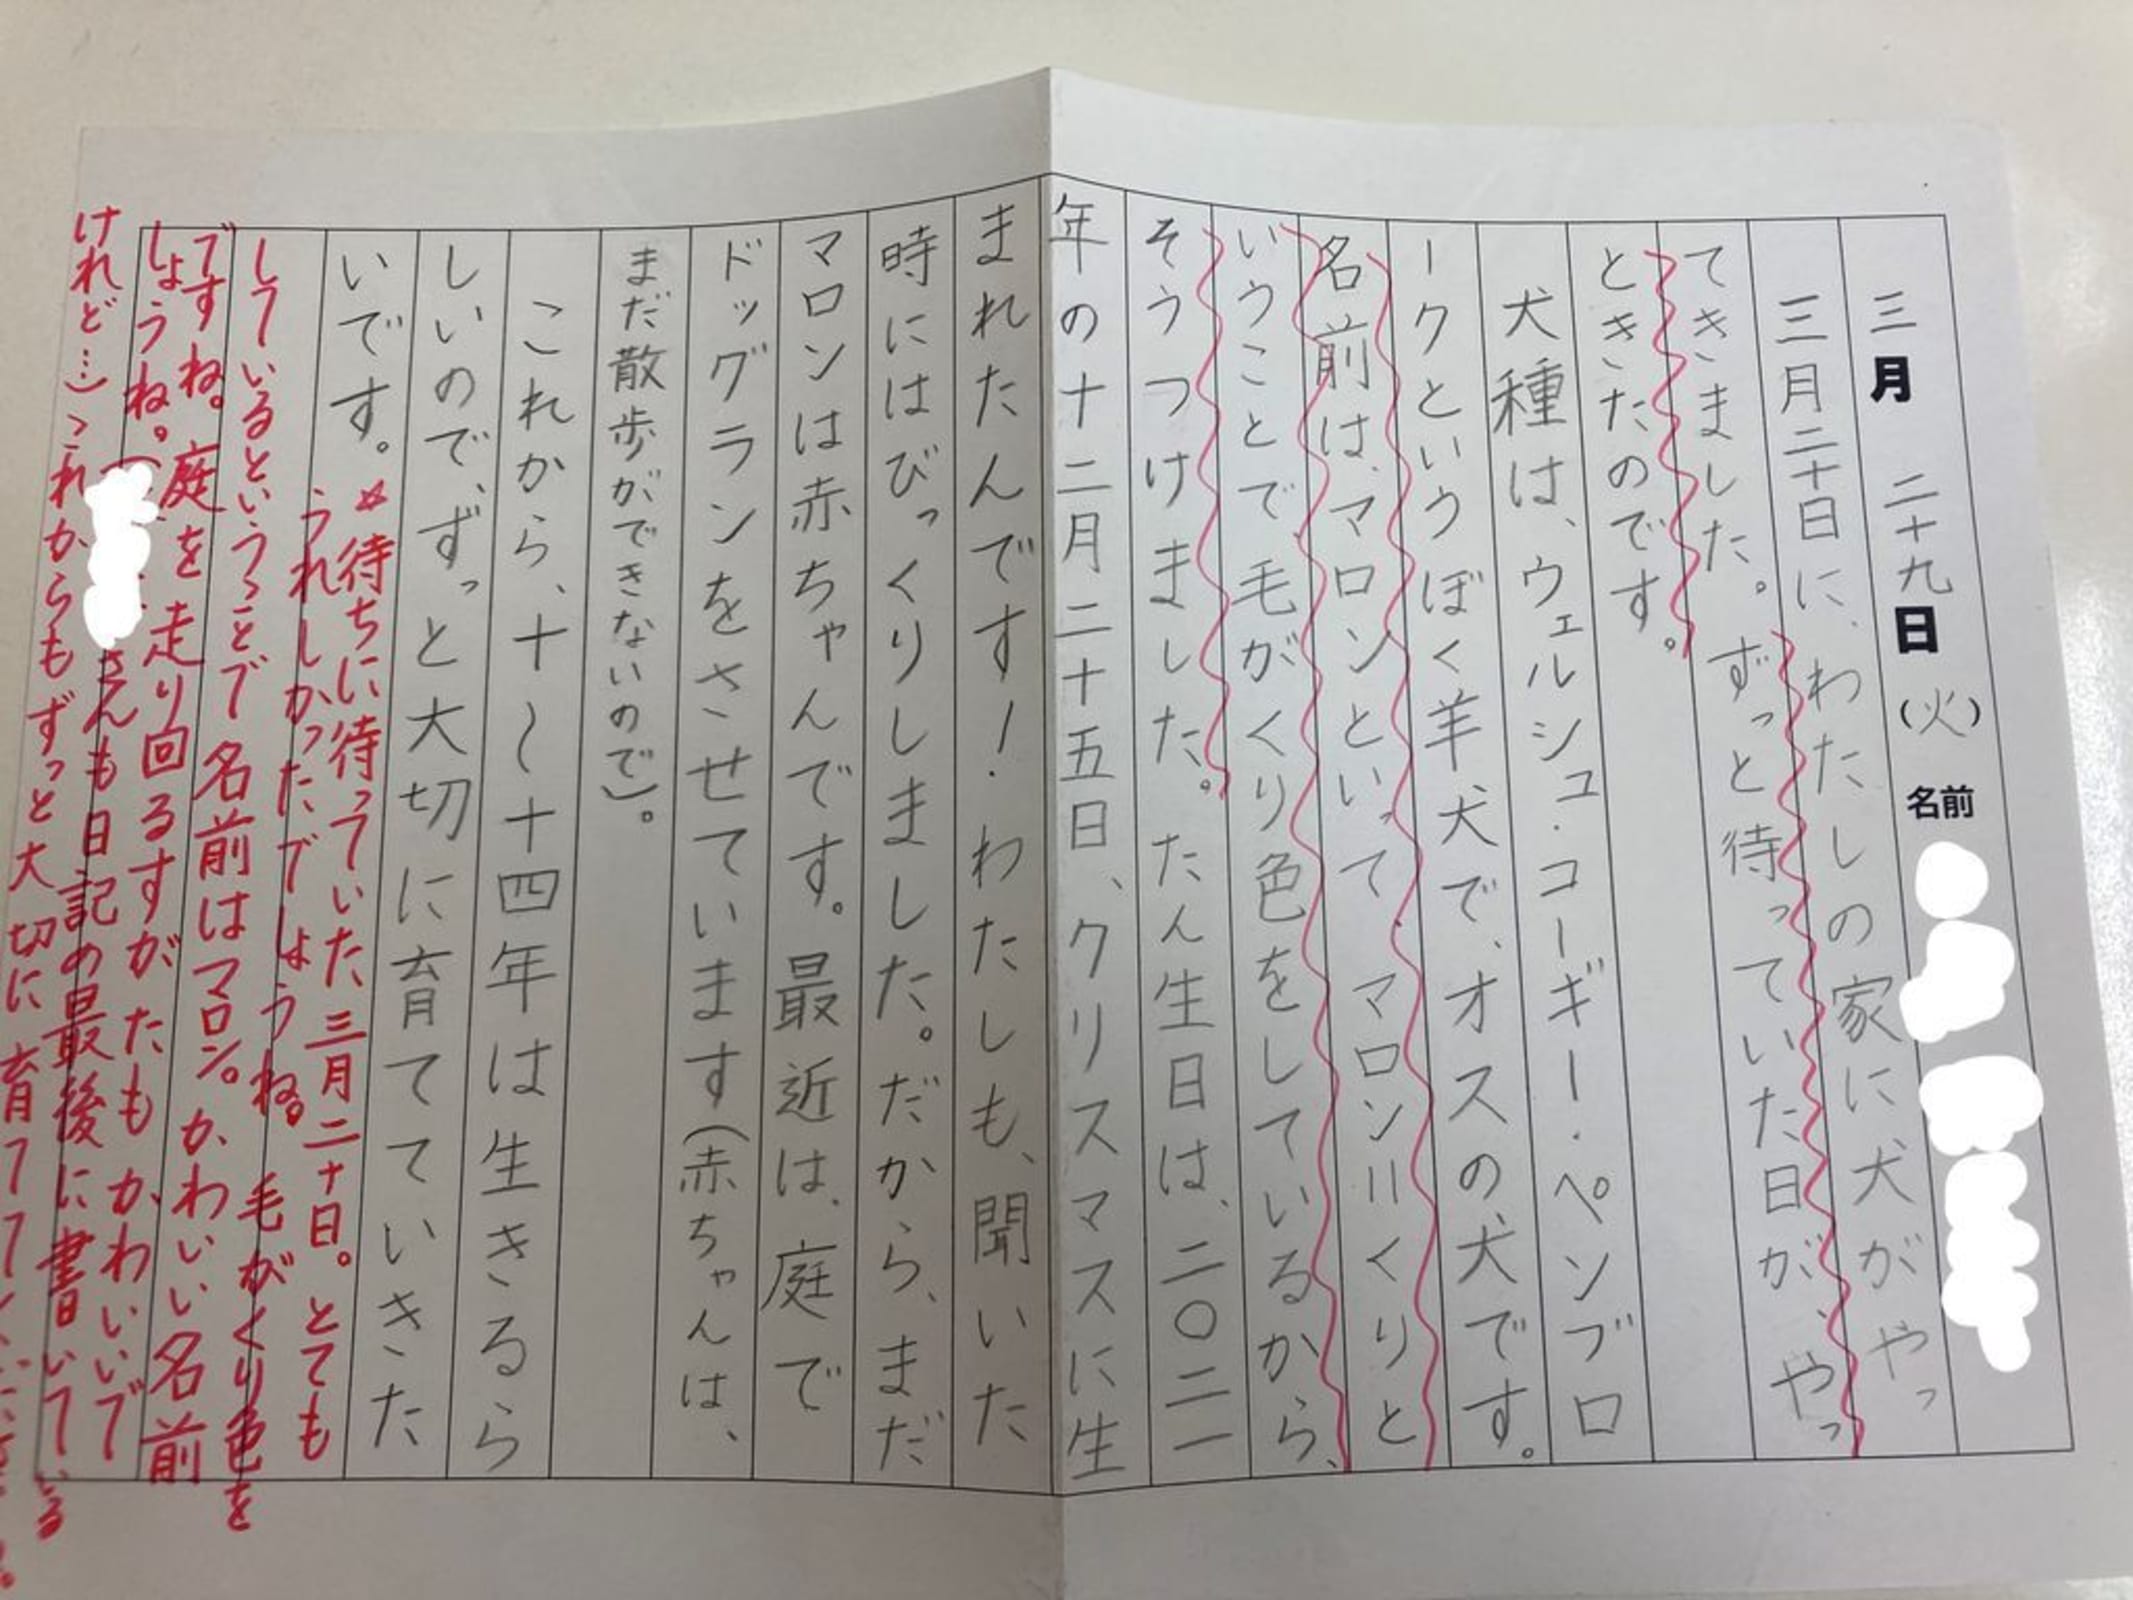 三月 二十九日(火) 名前
三月二十日に、わたしの家に犬がやっ
てきました。ずっと待っていた日が、やっ
ときたのです。
犬種は、ウェルシュ・コーギー・ペンブロ
ークというぼく羊犬で、オスの犬です。
名前は、マロンといって、マロン=くりと
いうことで毛がくり色をしているから、
そうつけました。たん生日は、二〇二一
年の十二月二十五日、クリスマスに生
まれたんです!わたしも、聞いた
時にはびっくりしました。だから、まだ
マロンは赤ちゃんです。最近は、庭で
ドッグランをさせています(赤ちゃんは、
まだ散歩ができないので)。
これから、十〜十四年は生きるら
しいので、ずっと大切に育てていきた
いです。
☆待ちに待っていた三月二十日。とても
うれしかったでしょうね。毛がくり色を
しているということで名前はマロン。かわいい名前
ですね。庭を走り回るすがたもかわいいで
しょうね。(さんも日記の最後に書いている
けれど…)これからもずっと大切に育てて